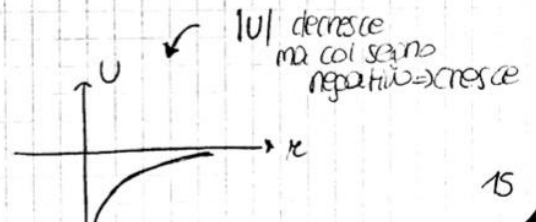 |U| decresce
ma col segno
negativo => cresce
U
r
15